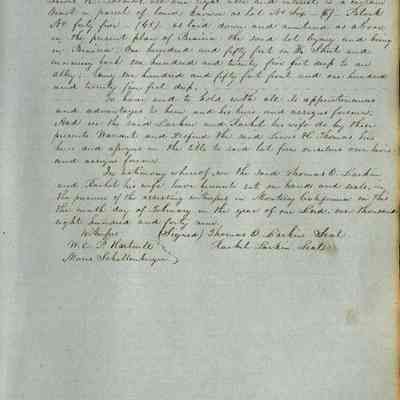 tract or parcel of land, known as lot No Six - (6) - Block
No forty five - (45) as laid down and numbered as above
in the present plan of Benicia the said lot lying and being
in Benicia; One hundred and fifty feet on the Street and
running back one hundred and twenty five feet deep to an
alley; being one hundred and fifty feet front and one hundred
and twenty five feet deep.
To have and to hold with all its appurtenances
and advantages to him and his heirs and assigns forever.
And we the said Larkin and Rachel his wife do by these
presents Warrant and Defend the said Lewis H. Thomas his
heirs and assigns in the title to said lot from ourselves our heirs
and assigns forever.
In testimony whereof, we the said Thomas O. Larkin
and Rachel his wife have hereunto set our hands and seals, in
the presence of the assisting witnesses in Monterey California on this
the ninth day of February in the year of our Lord, one thousand
eight hundred and forty nine.
Witness (Signed) Thomas O. Larkin Seal
W. E. P. Hartnell Rachel Larkin Seal
Maria Schallenberger